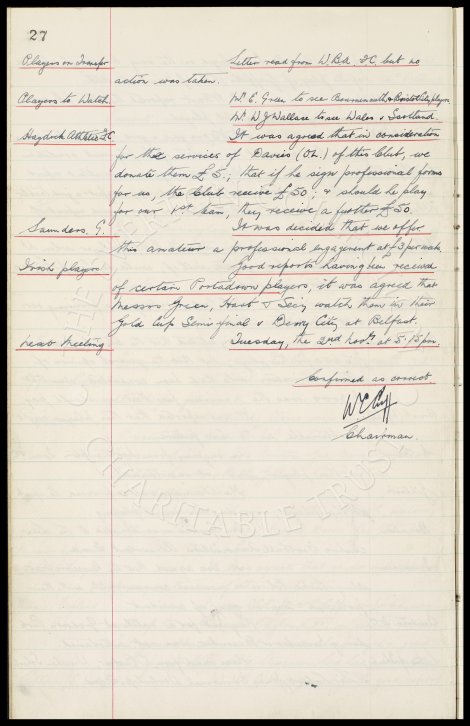 27
Players on Transfer. Letter read from W.B.A. F.C. but no
action was taken.
Players to Watch. Mr. E. Green to see Bournemouth & Bristol City players
Mr. W. J. Wallace to see Wales v Scotland.
Haydock Athletic F.C. It was agreed that in consideration
for the services of Davies (OL.) of this Club, we
donate them £5; that if he sign professional forms
for us, the Club receive £50; & should he play
for our 1st team, they receive a further £50.
Saunders. G. It was decided that we offer
this amateur a professional engagement at £3 per week
Irish players Good reports having been received
of certain Portadown players, it was agreed that
Messrs Green, & watch them in their
Gold Cup Semi final v Derry City, at Belfast.
Next Meeting Tuesday, the 2nd Novr. at 5.15 pm.
Confirmed as correct
W C Cuff
Chairman.
CHARITABLE TRUST